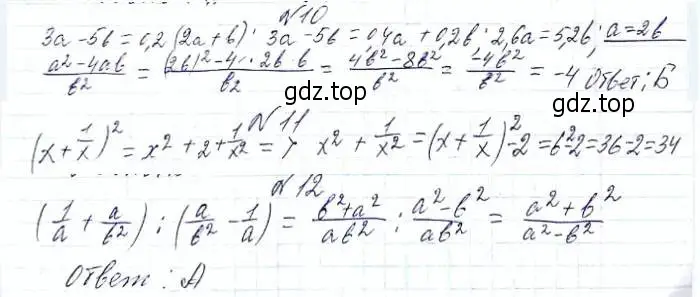 №10
3a - 5b = 0,2 (2a + b); 3a - 5b = 0,4a + 0,2b; 2,6a = 5,2b; a = 2b
(a² - 4ab)/b² = ((2b)² - 4 · 2b · b)/b² = (4b² - 8b²)/b² = (-4b²)/b² = -4 Ответ: Б
gdz.top
№11
(x + 1/x)² = x² + 2 + 1/x² => x² + 1/x² = (x + 1/x)² - 2 = 6² - 2 = 36 - 2 = 34
gdz.top
№12
(1/a + a/b²) : (a/b² - 1/a) = (b² + a²)/(ab²) : (a² - b²)/(ab²) = (a² + b²)/(a² - b²)
gdz.top
Ответ: А